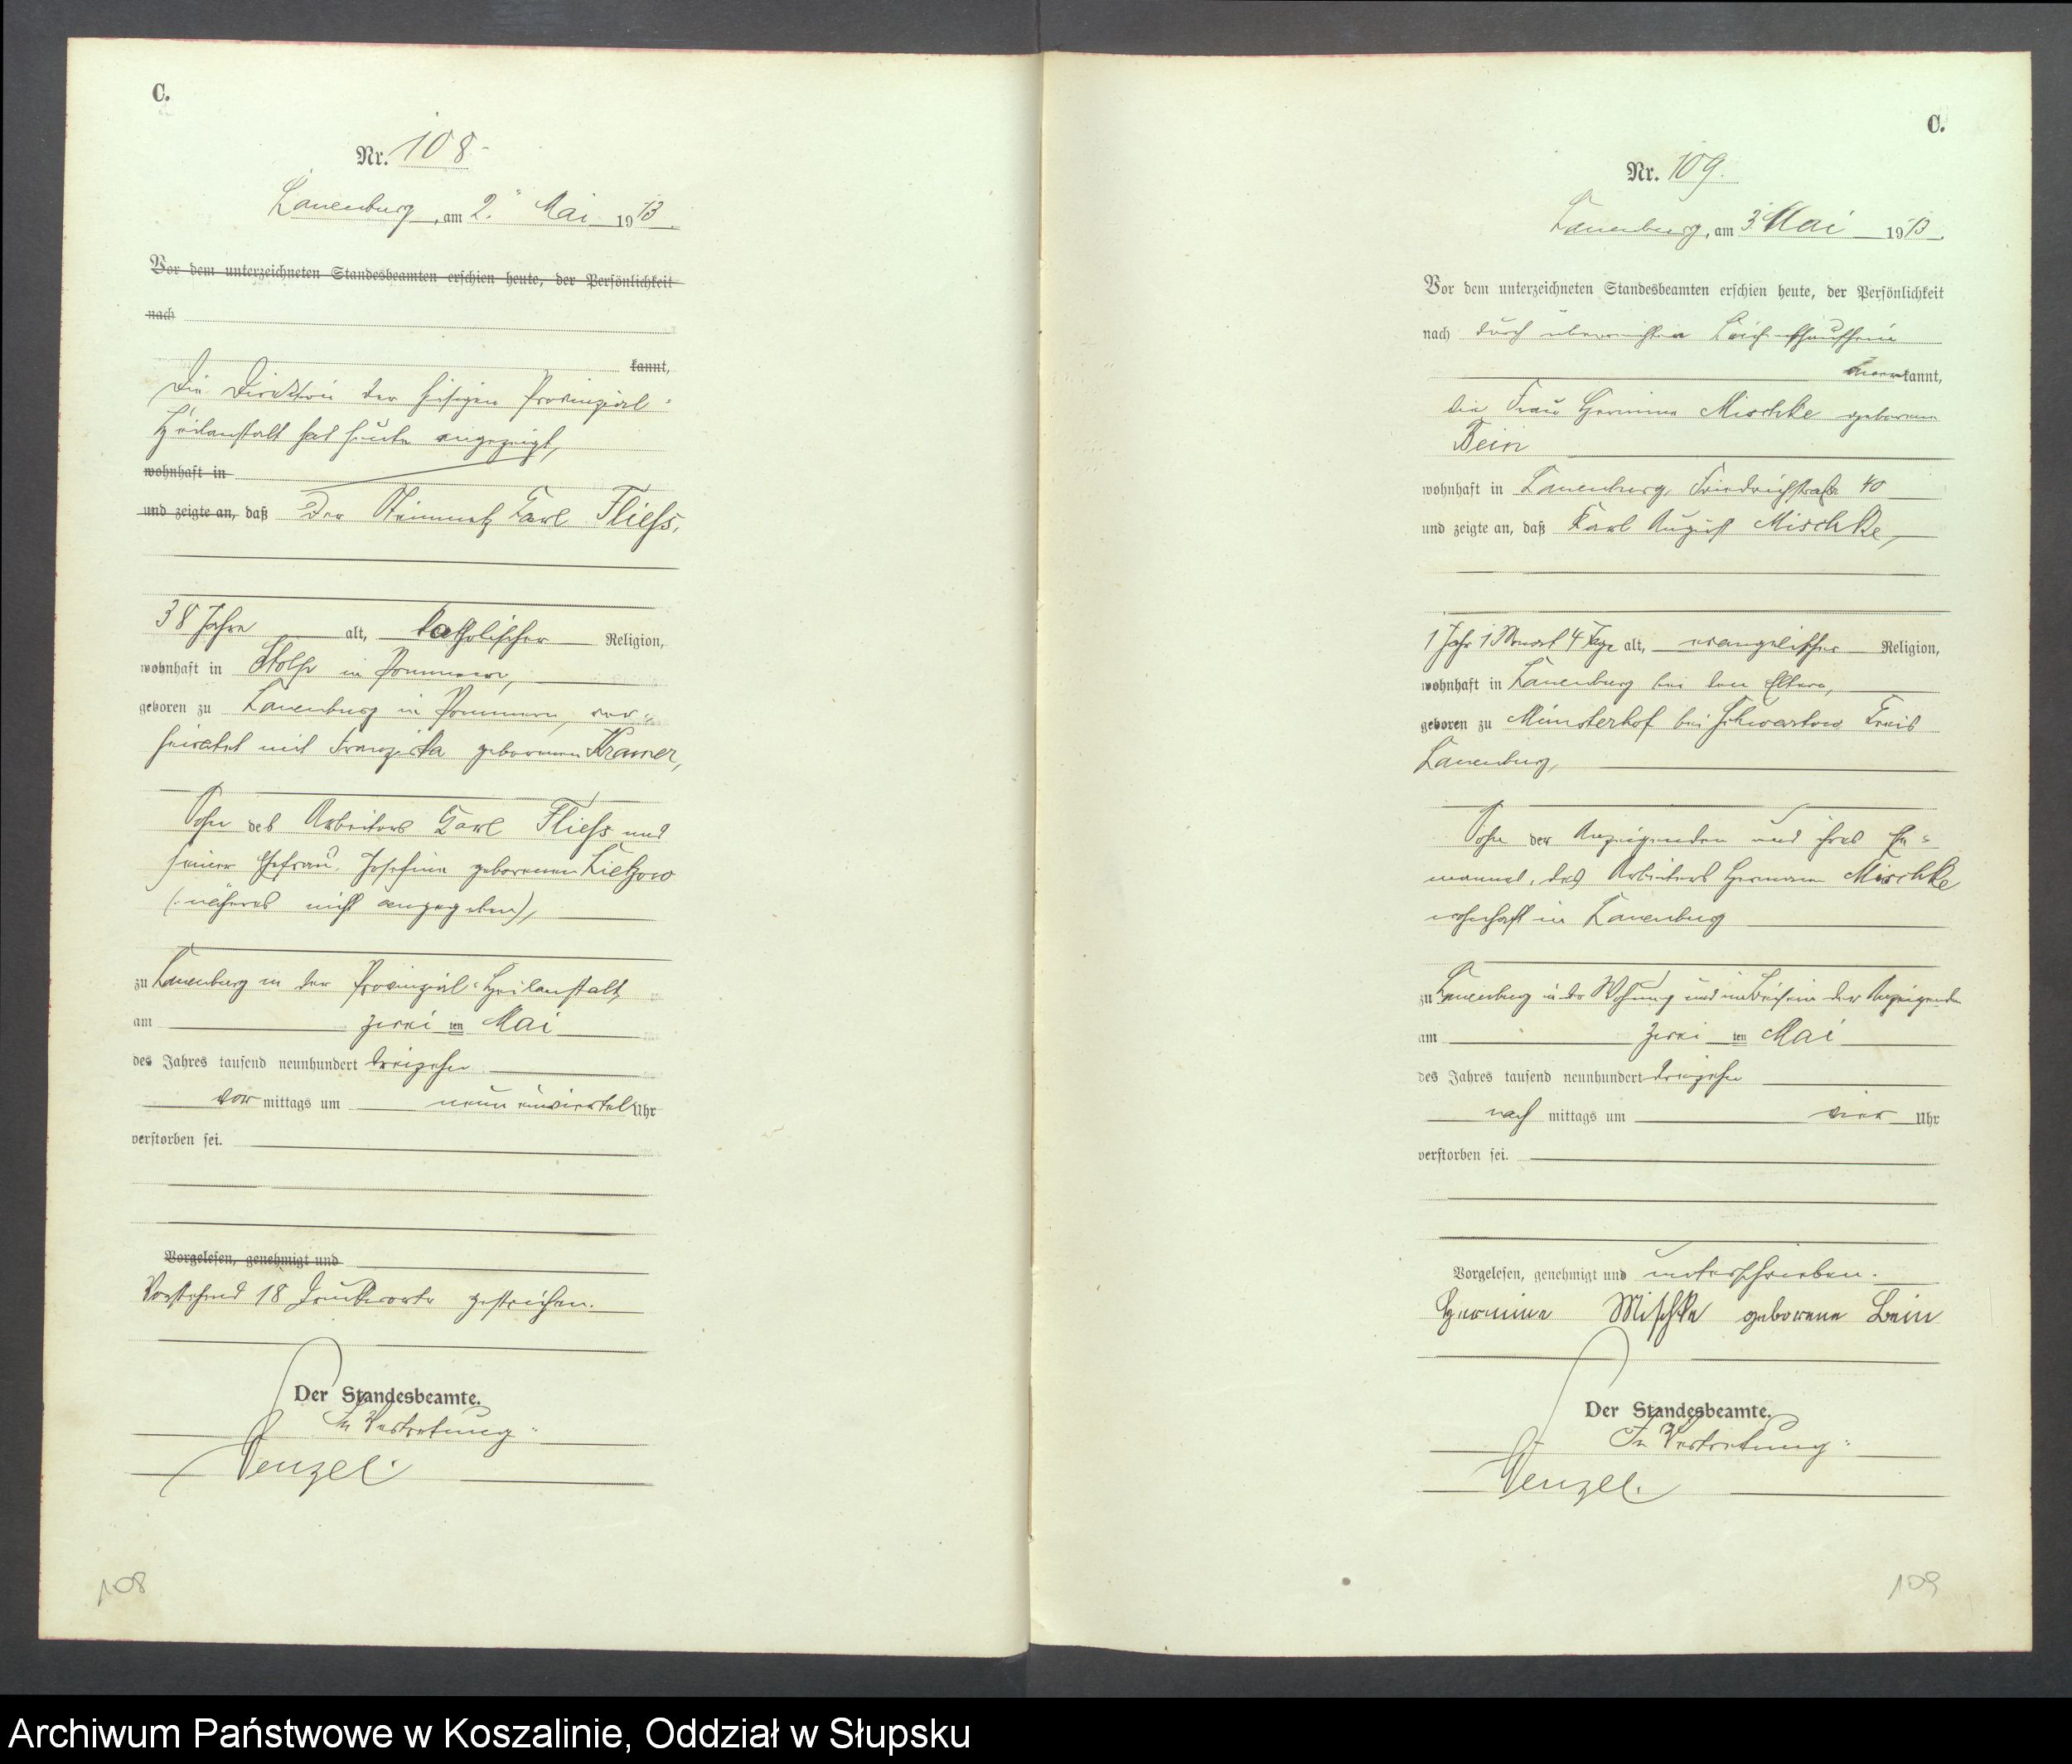 C.
Nr. 108
Lauenburg, am 2. Mai 1913.
Vor dem unterzeichneten Standesbeamten erschien heute, der Persönlichkeit
nach
kannt,
Die Direktion der hiesigen Provinzial-
Heilanstalt hat heute angezeigt,
wohnhaft in
und zeigte an, daß Der Steinmetz Carl Fließs,
38 Jahre alt, katholischer Religion,
wohnhaft in Stolp in Pommern,
geboren zu Lauenburg in Pommern, ver-
heiratet mit Franziska geborenen Kramer,
Sohn des Arbeiters Carl Fliess und
seiner Ehefrau, Josefine geborenen Lietzow
(näheres nicht angegeben),
zu Lauenburg in der Provinzial-Heilanstalt,
am zwei ten Mai
des Jahres tausend neunhundert dreizehn
vor mittags um neun einviertel Uhr
verstorben sei.
Vorgelesen, genehmigt und
Vorstehend 18 Druckworte gestrichen.
Der Standesbeamte.
In Vertretung:
Wenzel.
108
C.
Nr. 109.
Lauenburg, am 3. Mai 1913.
Vor dem unterzeichneten Standesbeamten erschien heute, der Persönlichkeit
nach durch überreichten Leichenschauschein
anerkannt,
die Frau Hermine Mischke geborene
Bein
wohnhaft in Lauenburg, Friedrichstraße 40
und zeigte an, daß Karl August Mischke,
1 Jahr 1 Monat 4 Tage alt, evangelischer Religion,
wohnhaft in Lauenburg bei den Eltern,
geboren zu Münsterhof bei Schwartow Kreis
Lauenburg,
Sohn der Anzeigenden und ihres Ehe-
mannes, des Arbeiters Hermann Mischke
wohnhaft in Lauenburg
zu Lauenburg in der Wohnung und im Beisein der Anzeigenden
am zwei ten Mai
des Jahres tausend neunhundert dreizehn
nach mittags um vier Uhr
verstorben sei.
Vorgelesen, genehmigt und unterschrieben.
Hermine Mischke geborene Bein
Der Standesbeamte.
In Vertretung:
Wenzel.
109
Archiwum Państwowe w Koszalinie, Oddział w Słupsku